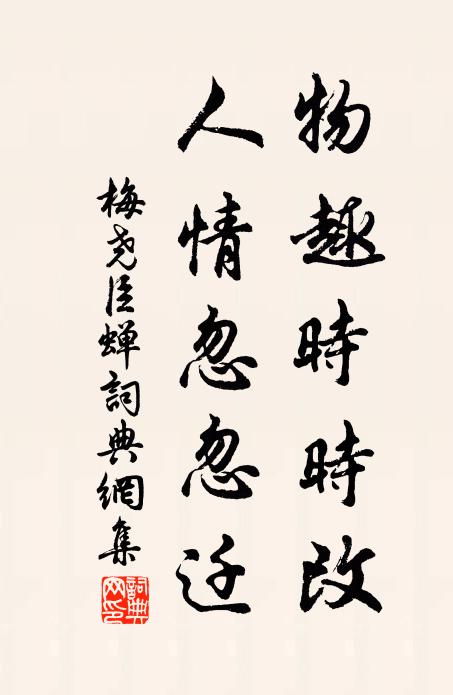 物趣時時改
人情忽忽迁
梅尧臣蝉詞典網集
詞典网印